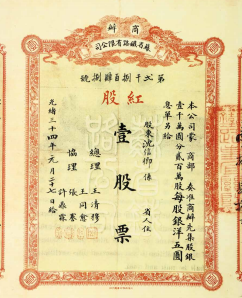 商辦
蘇省鐵路有限公司
第弍千捌百肆捌號
紅股
本公司蒙 商部 奏准商辦先集股銀
壹千萬圓分貳百萬股每股銀洋五圓
股東沈信卿係 省人住
壹股票
總理 王清穆
協理 張謇
王同愈
許鼎霖
光緒三十四年元月二十七日給